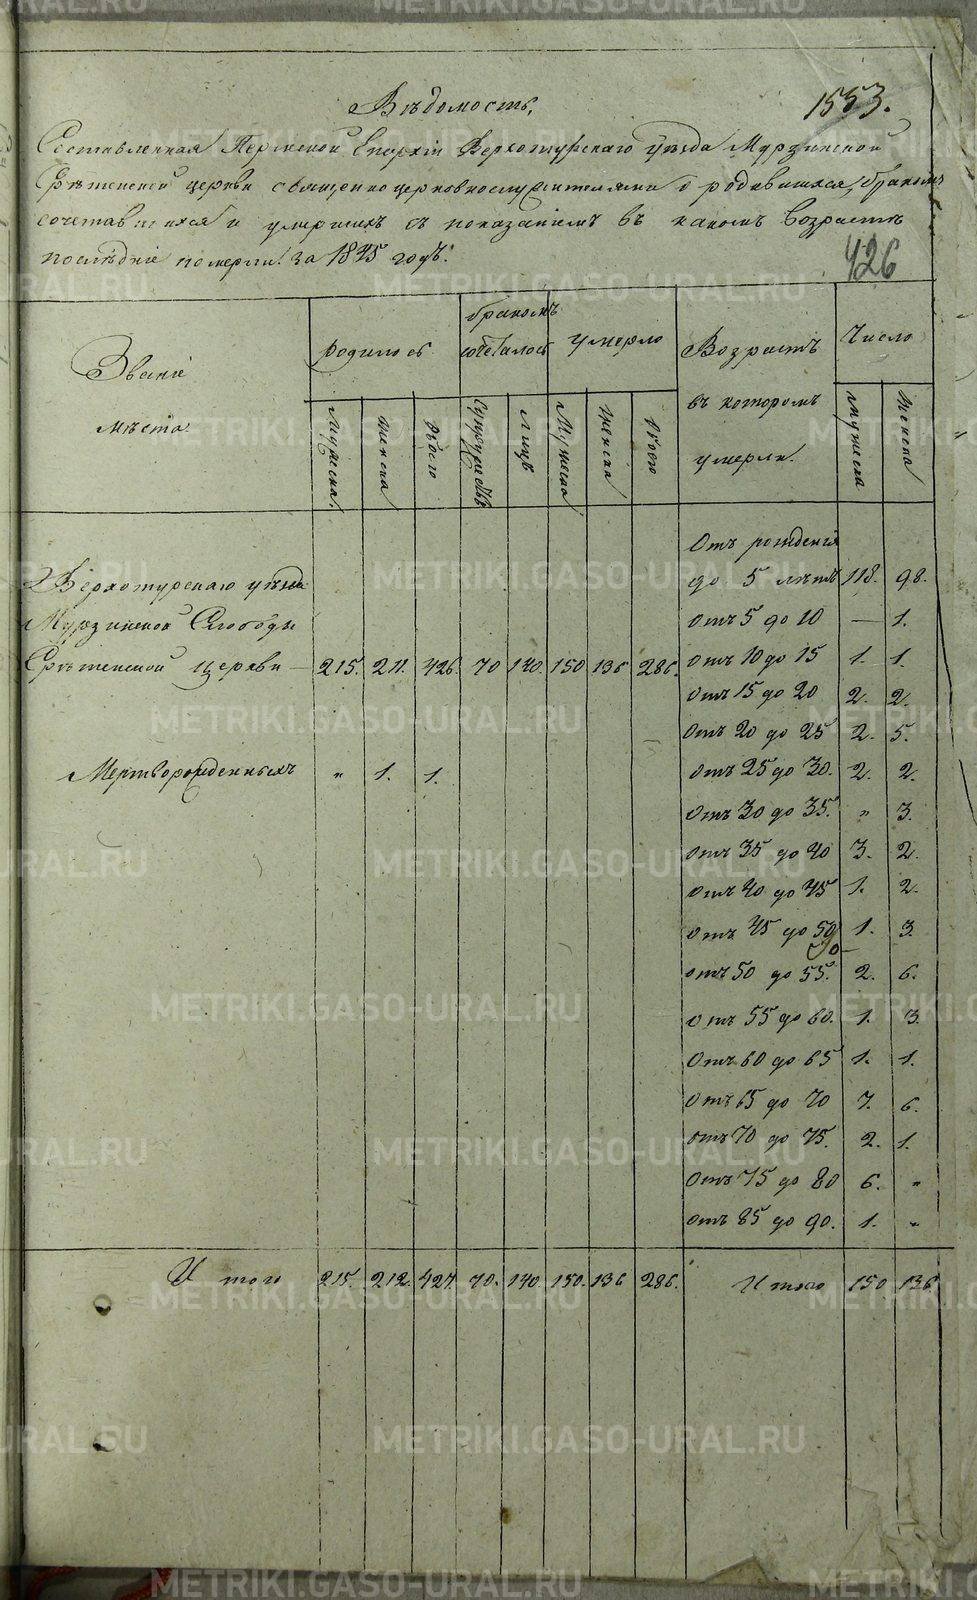 Вѣдомость,
1553.
Составленная Пермской Епархіи Верхотурскаго уѣзда Мурзинской
Срѣтенской церкви священноцерковнослужителями о родившихся, бракомъ
сочетавшихся и умершихъ съ показаніемъ въ какомъ возрастѣ
послѣдніе померли: за 1845 годъ.
426
Званіе мѣста
Родилось
бракомъ сочеталось
умерло
Возрастъ въ которомъ умерли.
Число
Мужеска
женска
всего
Супружествъ
лицъ
Мужеска
женска
всего
мужеска
женска
Отъ рожденія
до 5 лѣтъ 118. 98.
Верхотурскаго уѣзда
отъ 5 до 10 — 1.
Мурзинской Слободы
Срѣтенской церкви — 215. 211. 426. 70 140. 150 136 286. отъ 10 до 15 1. 1.
отъ 15 до 20 2. 2.
отъ 20 до 25 2. 5.
Мертворожденныхъ „ 1. 1. отъ 25 до 30. 2. 2.
отъ 30 до 35. „ 3.
отъ 35 до 40 3. 2.
отъ 40 до 45 1. 2.
отъ 45 до 50 1. 3.
отъ 50 до 55. 2. 6.
отъ 55 до 60. 1. 3.
отъ 60 до 65 1. 1.
отъ 65 до 70 7. 6.
отъ 70 до 75. 2. 1.
отъ 75 до 80 6. „
отъ 85 до 90. 1. „
Итого 215. 212. 427. 70. 140. 150. 136 286. Итого 150 136
METRIKI.GASO-URAL.RU